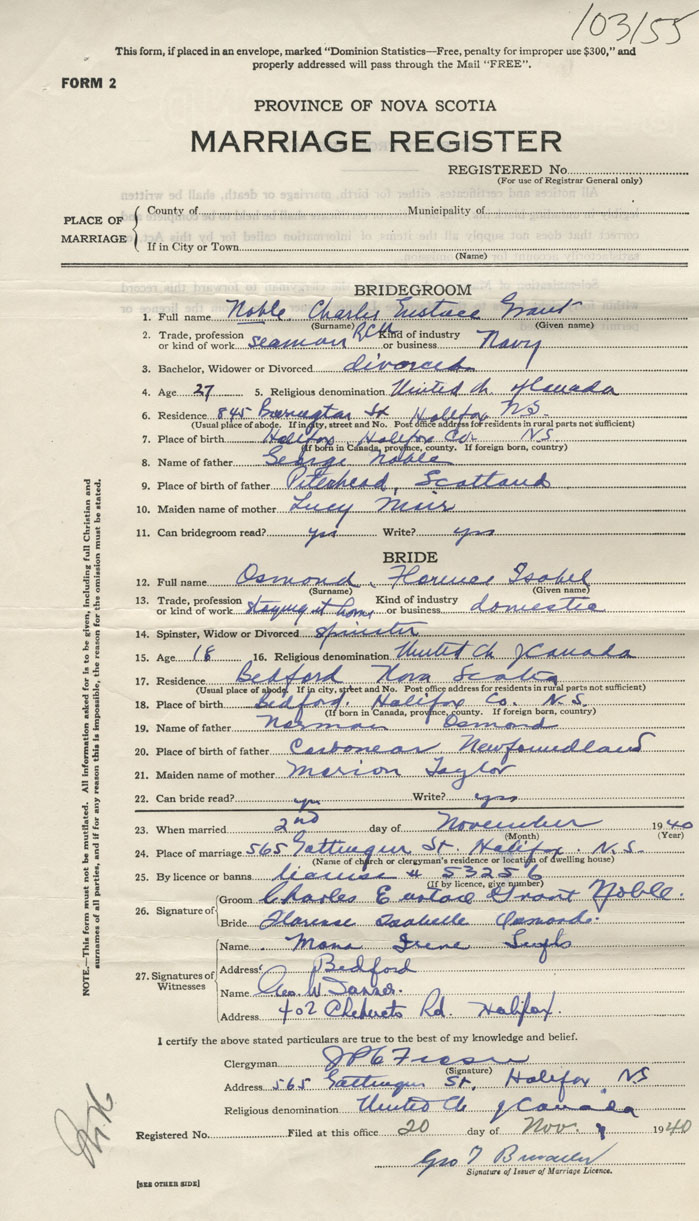 103/55
This form, if placed in an envelope, marked "Dominion Statistics—Free, penalty for improper use $300," and
properly addressed will pass through the Mail "FREE".
FORM 2
PROVINCE OF NOVA SCOTIA
MARRIAGE REGISTER
REGISTERED No.
(For use of Registrar General only)
PLACE OF MARRIAGE
County of Municipality of
If in City or Town
(Name)
BRIDEGROOM
1. Full name Noble, Charles Eustace Grant
(Surname) (Given name)
2. Trade, profession or kind of work seaman RCN Kind of industry or business Navy
3. Bachelor, Widower or Divorced divorced
4. Age 27 5. Religious denomination United Ch of Canada
6. Residence 845 Barrington St Halifax NS.
(Usual place of abode. If in city, street and No. Post office address for residents in rural parts not sufficient)
7. Place of birth Halifax Halifax Co. N.S.
(If born in Canada, province, county. If foreign born, country)
8. Name of father George Noble
9. Place of birth of father Peterhead, Scotland
10. Maiden name of mother Lucy Muir
11. Can bridegroom read? yes Write? yes
BRIDE
12. Full name Osmond, Florence Isabel
(Surname) (Given name)
13. Trade, profession or kind of work staying at home Kind of industry or business domestic
14. Spinster, Widow or Divorced spinster
15. Age 18 16. Religious denomination United Ch of Canada
17. Residence Bedford Nova Scotia
(Usual place of abode. If in city, street and No. Post office address for residents in rural parts not sufficient)
18. Place of birth Bedford, Halifax Co. N.S.
(If born in Canada, province, county. If foreign born, country)
19. Name of father Norman Osmond
20. Place of birth of father Carbonear Newfoundland
21. Maiden name of mother Marion Taylor
22. Can bride read? yes Write? yes
23. When married 2nd day of November 1940
(Month) (Year)
24. Place of marriage 565 Gottingen St. Halifax. N.S.
(Name of church or clergyman's residence or location of dwelling house)
25. By licence or banns license # 53256
(If by licence, give number)
26. Signature of
Groom Charles Eustace Grant Noble.
Bride Florence Isabelle Osmond.
27. Signatures of Witnesses
Name Mona Irene
Address Bedford
Name Geo. W.
Address 402 Chebucto Rd. Halifax.
I certify the above stated particulars are true to the best of my knowledge and belief.
Clergyman
(Signature)
Address 565 Gottingen St. Halifax. NS
Religious denomination United Ch of Canada
Registered No. Filed at this office 20 day of Nov. 1940
Geo T
Signature of Issuer of Marriage Licence.
[SEE OTHER SIDE]
NOTE.—This form must not be mutilated. All information asked for is to be given, including full Christian and
surnames of all parties, and if for any reason this is impossible, the reason for the omission must be stated.